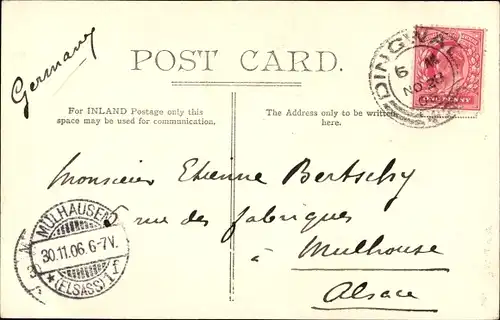 Germany
POST CARD.
For INLAND Postage only this
space may be used for communication.
The Address only to be written
here.
DINGWALL
ONE PENNY
Monsieur Etienne Bertschy
5 rue des fabriques
à Mulhouse
Alsace
MÜLHAUSEN
30.11.06. 6-7V.
* (ELSASS) 1 f